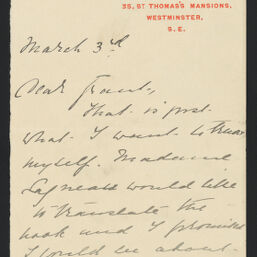 35, ST THOMAS'S MANSIONS,
WESTMINSTER,
S.E.
March 3rd
Dear Grant,
That is just
what I want to know
myself. Madame
would like
to translate the
book and I promised
I would see about